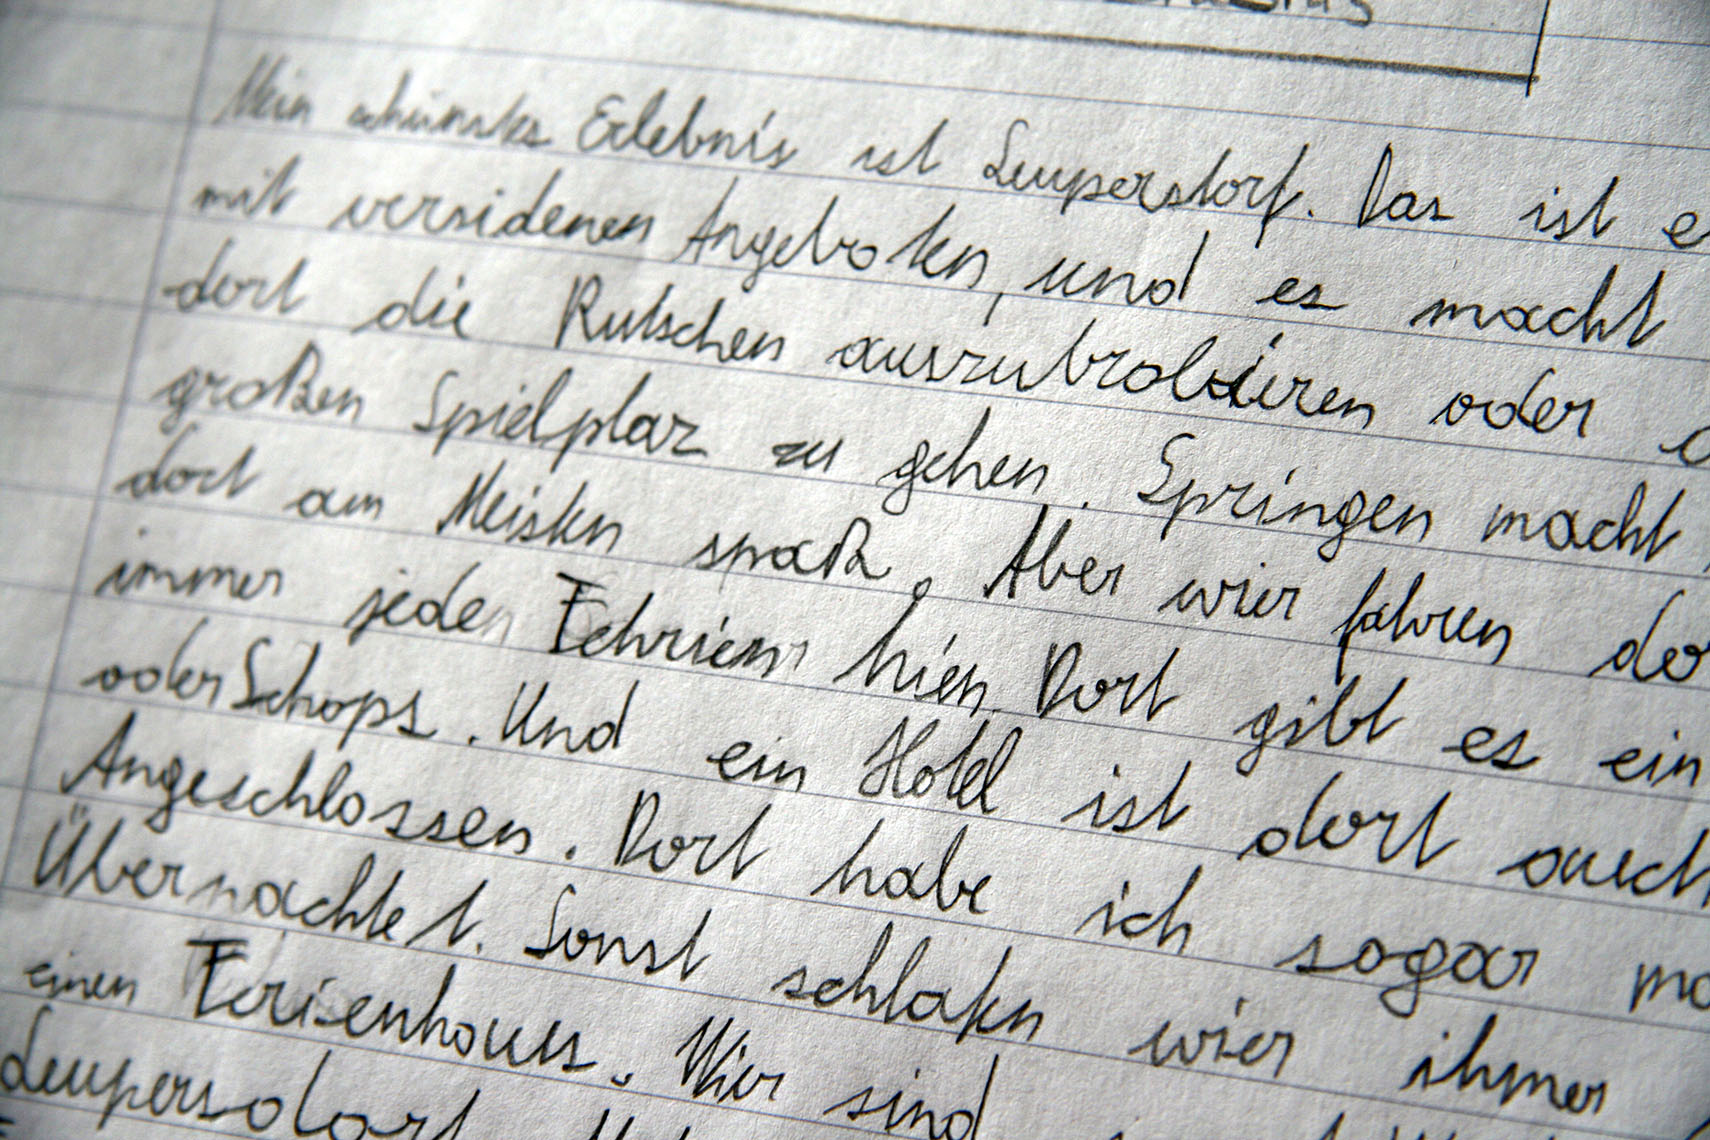 Mein schünstes Erlebnis ist Leuperstorf. Das ist
mit versidenen Angeboten, und es macht
dort die Rutschen auszubrobieren oder
großen Spielplaz zu gehen. Springen macht
dort am Meisten spaß. Aber wier fahren
immer jede Fehrien hien. Dort gibt es ein
oder Schops. Und ein Hotel ist dort auch
Angeschlossen. Dort habe ich sogar
Übernachtet. Sonst schlafen wier ihmer
einen Ferisenhaus. Wier sind
Leupersdorf